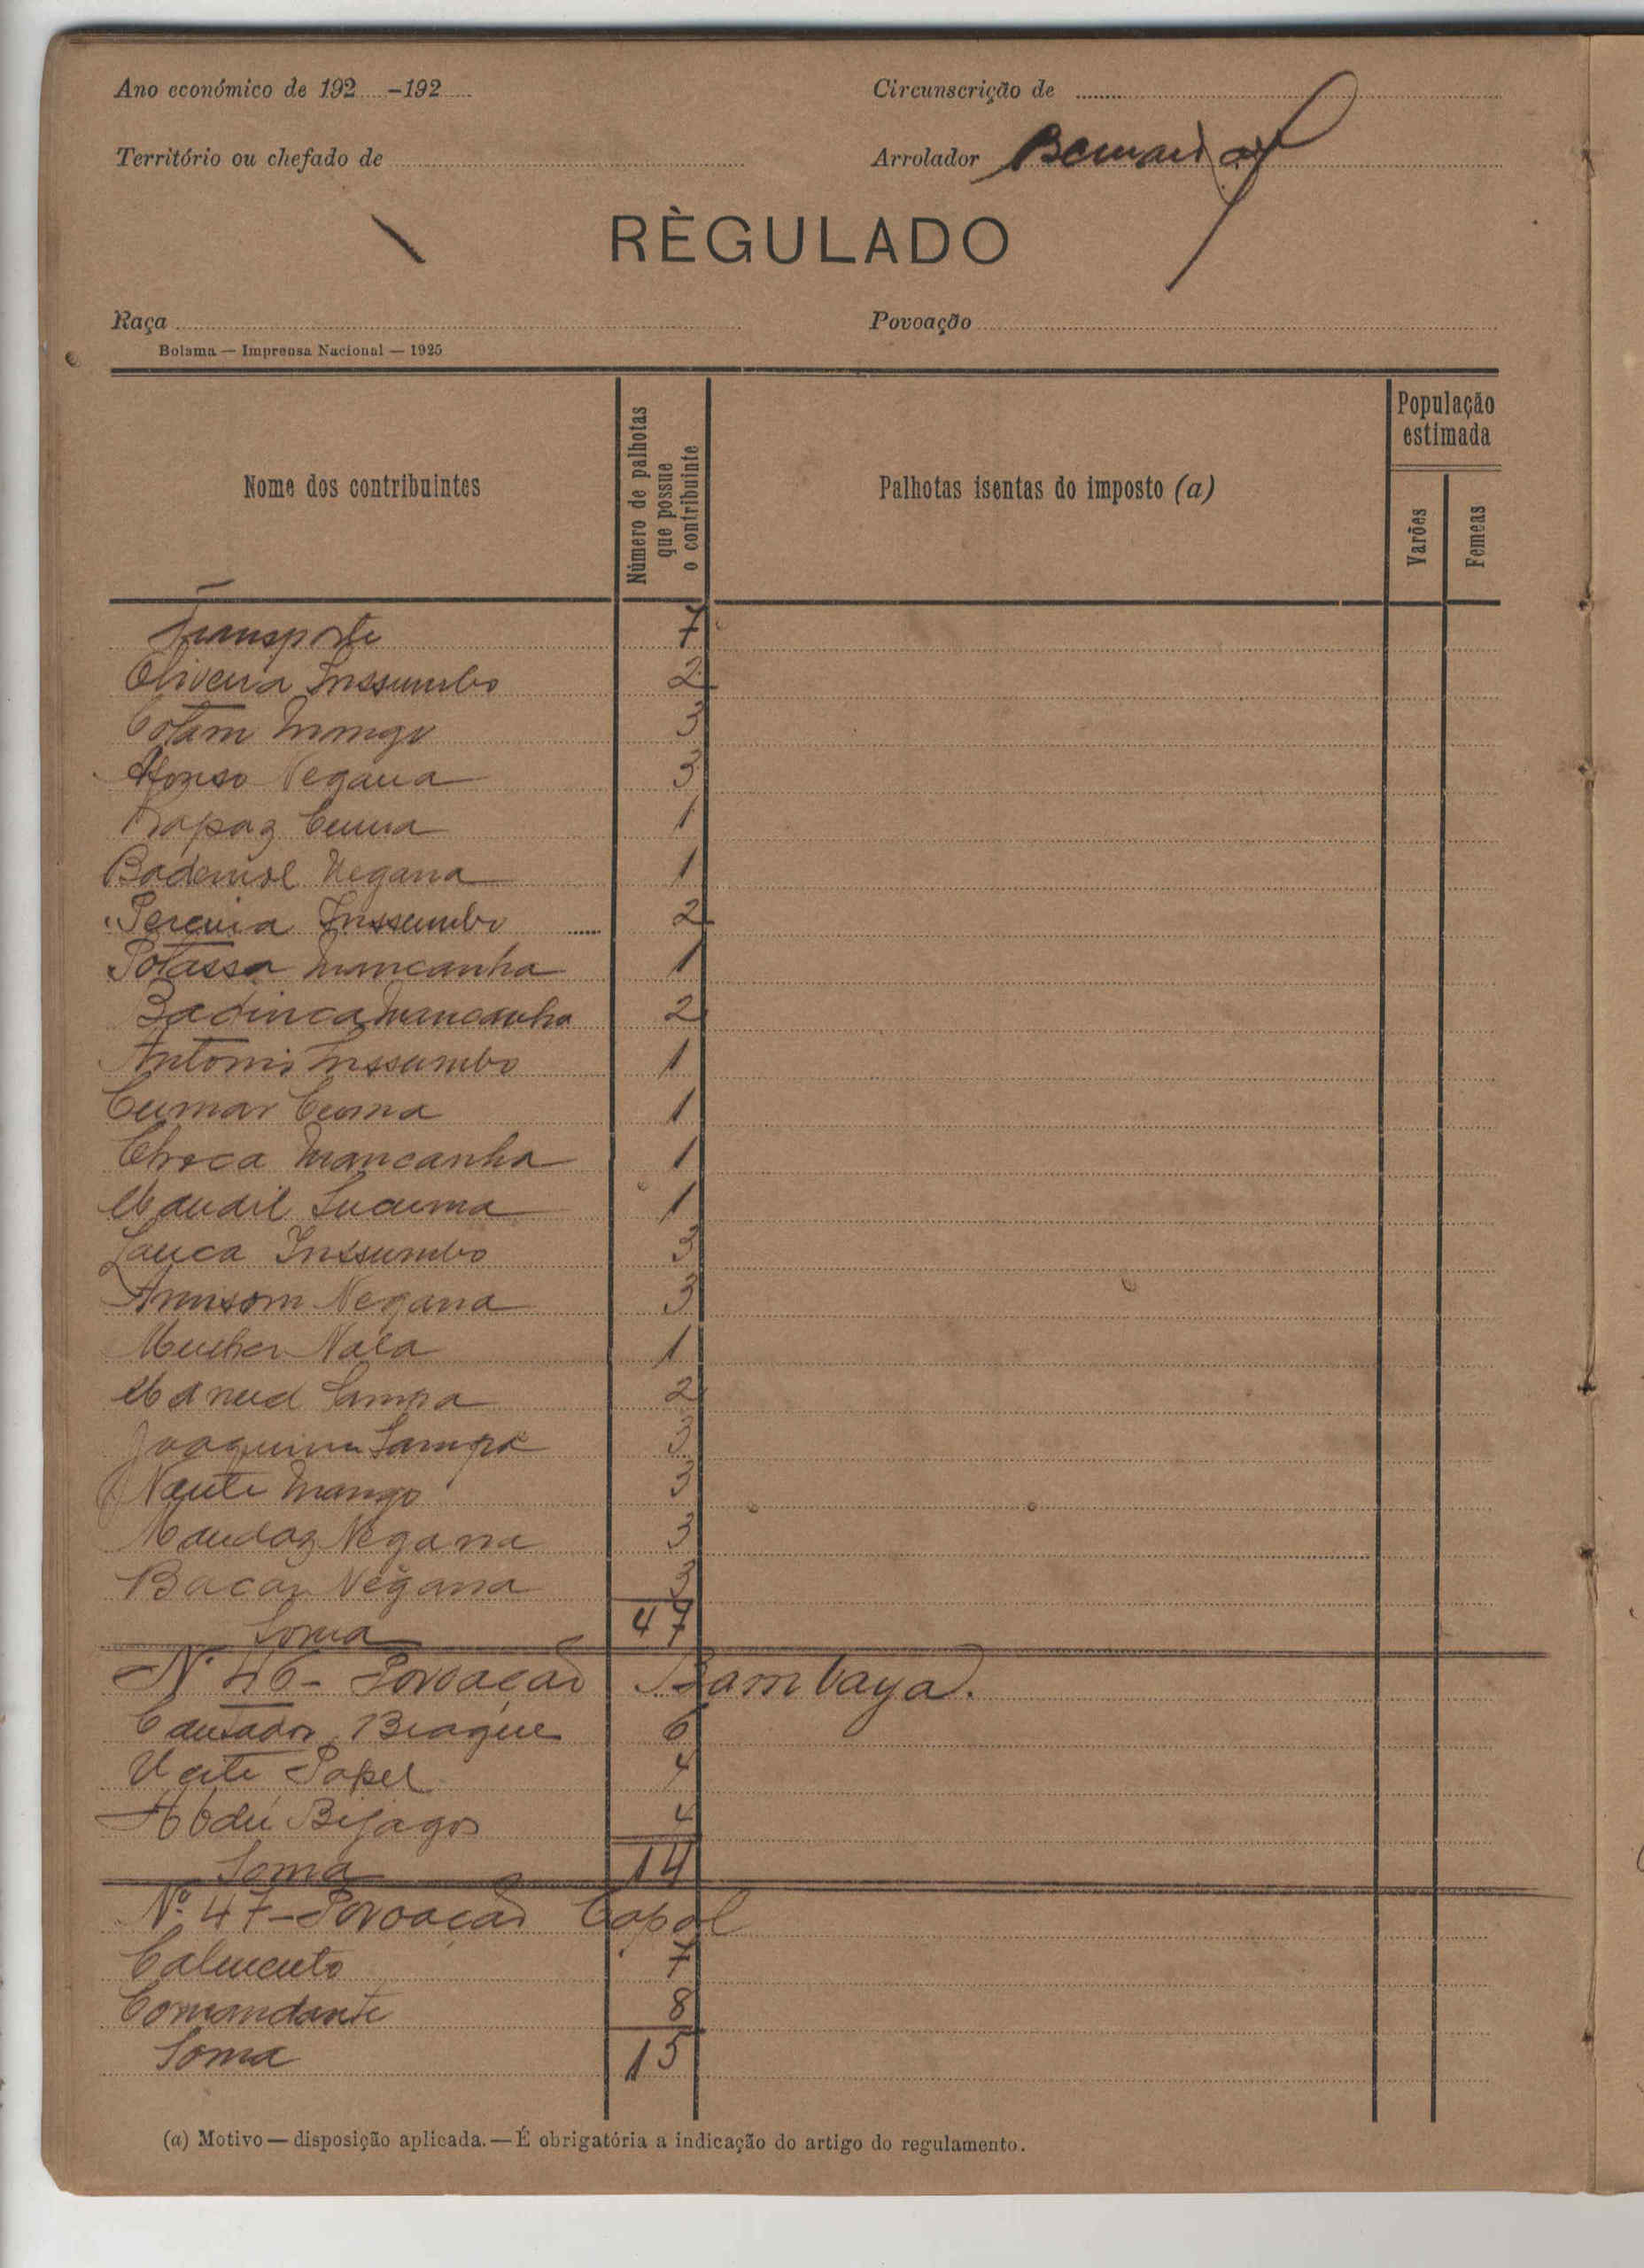 Ano económico de 192.....-192.....
Circunscrição de
Território ou chefado de
Arrolador
RÈGULADO
Raça
Povoação
Bolama — Imprensa Nacional — 1925
Nome dos contribuintes
Número de palhotas que possue o contribuinte
Palhotas isentas do imposto (a)
População estimada
Varões
Femeas
Transporte 7
Oliveira Inssumbo 2
Cotam Mango 3
Afonso Negana 3
Rapaz Cuma 1
Negana 1
Pereira Inssumbo 2
Potassa Mancanha 1
Badinca Mancanha 2
Antonio Inssumbo 1
Cumar Cuma 1
Choca Mancanha 1
1
Lauca Inssumbo 3
Negana 3
Mulher Nala 1
Manuel Sampa 2
Joaquim Sampa 3
Naute Mango 3
Negana 3
Bacar Negana 3
Soma 47
Nº 46 - Povoação Bambaya.
Cansador Biague 6
Papel 4
Abdú Bijagos 4
Soma 14
Nº 47 - Povoação Capol
7
Comandante 8
Soma 15
(a) Motivo — disposição aplicada. — É obrigatória a indicação do artigo do regulamento.